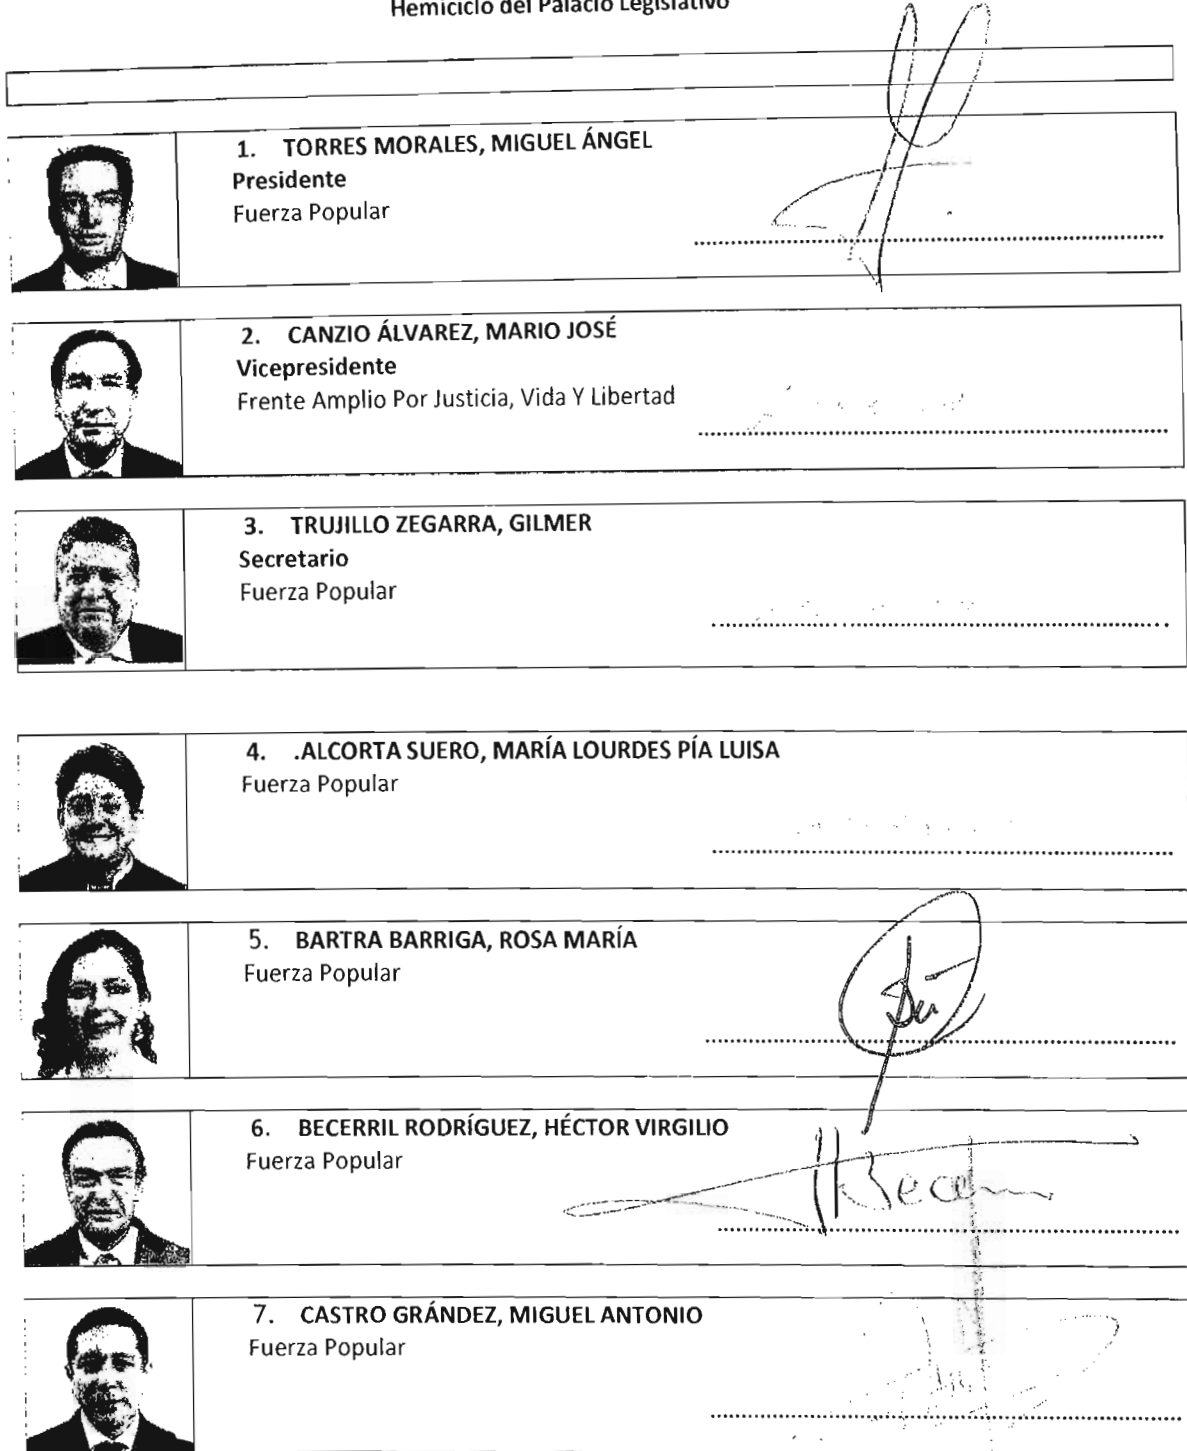 Hemiciclo del Palacio Legislativo
1. TORRES MORALES, MIGUEL ÁNGEL
Presidente
Fuerza Popular
2. CANZIO ÁLVAREZ, MARIO JOSÉ
Vicepresidente
Frente Amplio Por Justicia, Vida Y Libertad
3. TRUJILLO ZEGARRA, GILMER
Secretario
Fuerza Popular
4. .ALCORTA SUERO, MARÍA LOURDES PÍA LUISA
Fuerza Popular
5. BARTRA BARRIGA, ROSA MARÍA
Fuerza Popular
6. BECERRIL RODRÍGUEZ, HÉCTOR VIRGILIO
Fuerza Popular
7. CASTRO GRÁNDEZ, MIGUEL ANTONIO
Fuerza Popular